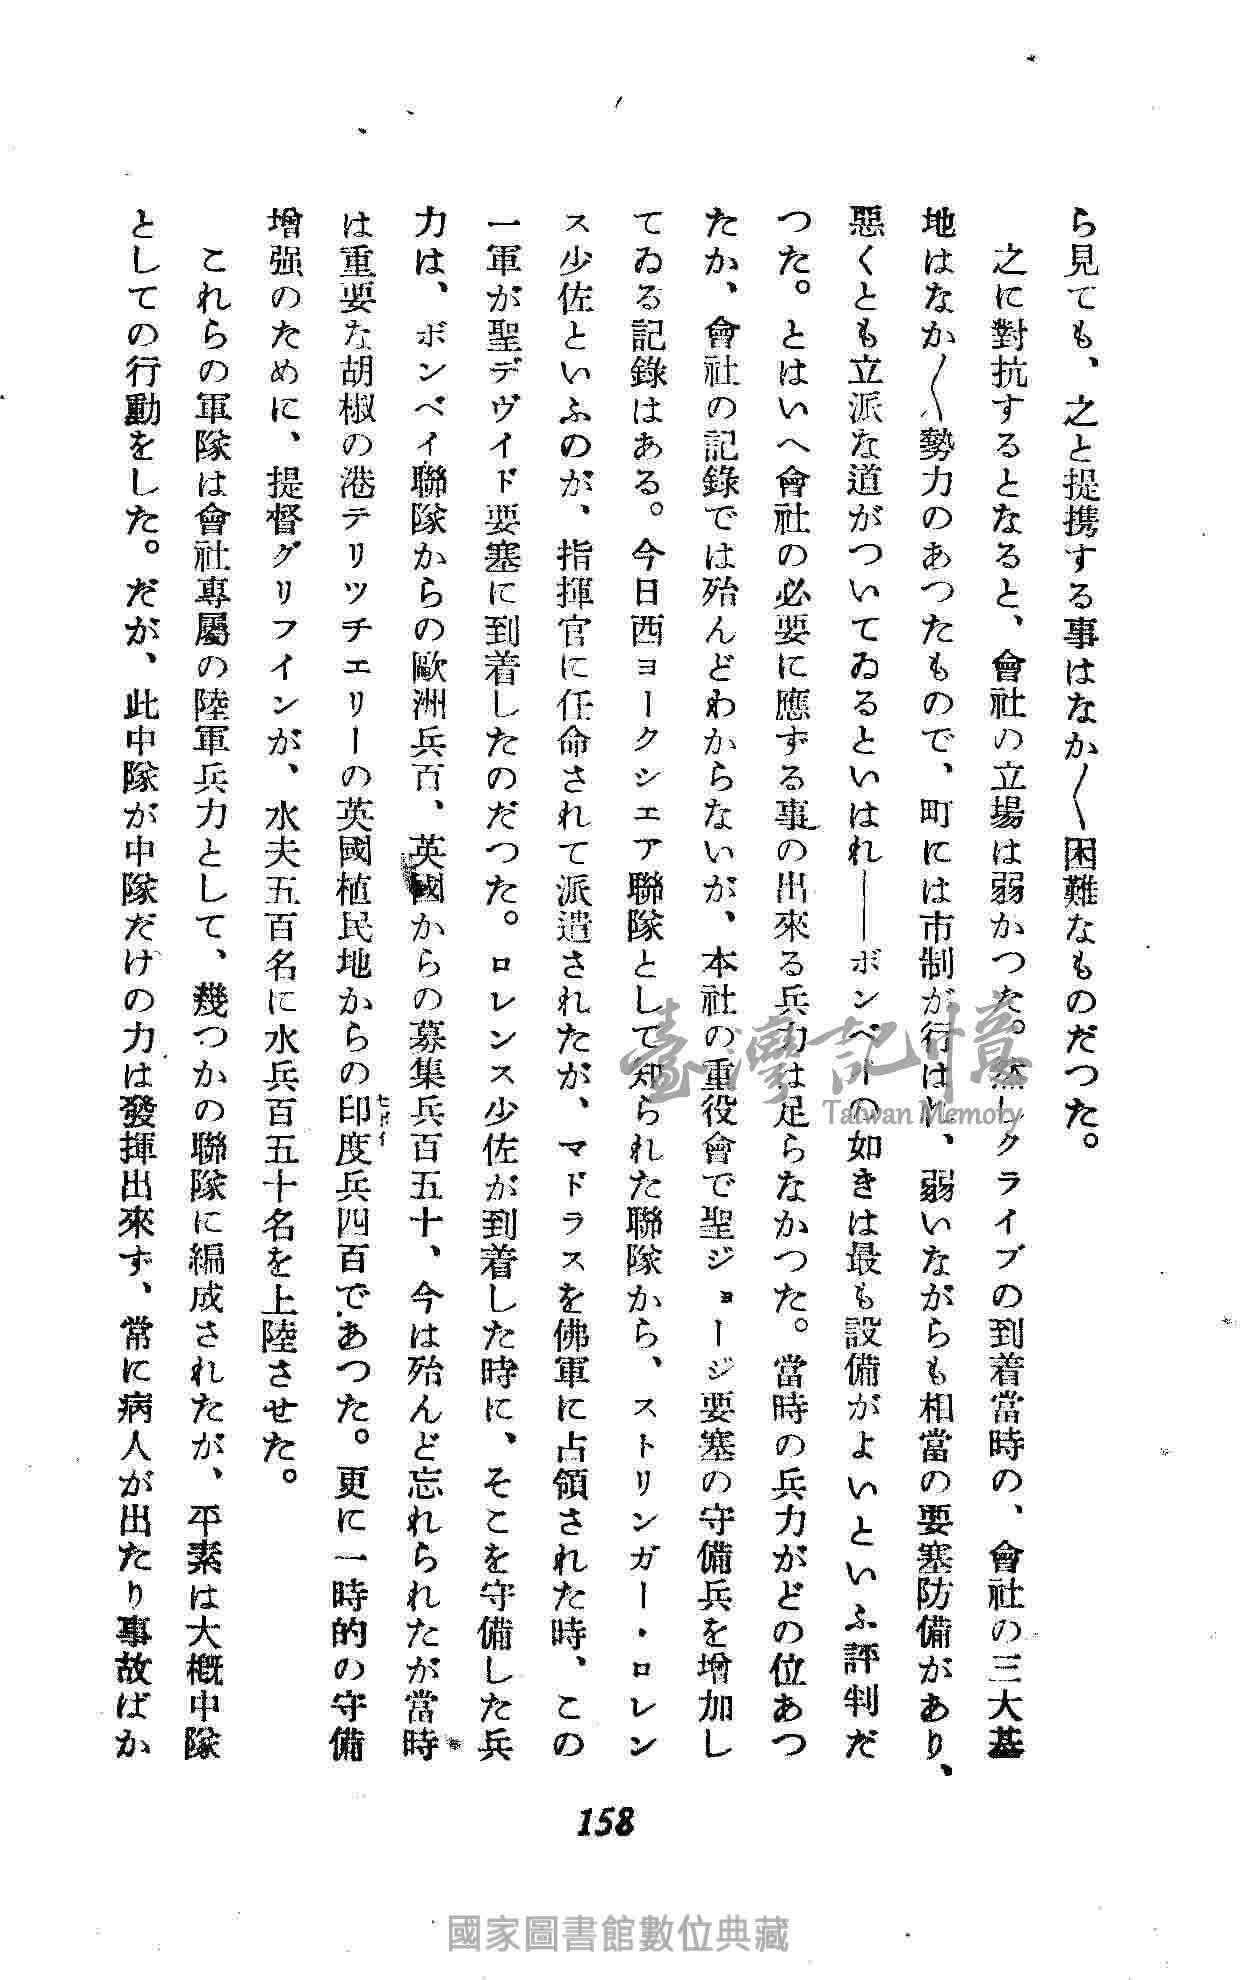 ら見ても、之と提携する事はなか〱困難なものだつた。
之に對抗するとなると、會社の立場は弱かつた。然しクライブの到着當時の、會社の三大基
地はなか〱勢力のあつたもので、町には市制が行はれ、弱いながらも相當の要塞防備があり、
惡くとも立派な道がついてゐるといはれ――ボンベイの如きは最も設備がよいといふ評判だ
つた。とはいへ會社の必要に應ずる事の出來る兵力は足らなかつた。當時の兵力がどの位あつ
たか、會社の記錄では殆んどわからないが、本社の重役會で聖ジョージ要塞の守備兵を增加し
てゐる記錄はある。今日西ヨークシエア聯隊として知られた聯隊から、ストリンガー・ロレン
ス少佐といふのが、指揮官に任命されて派遣されたが、マドラスを佛軍に占領された時、この
一軍が聖デヴイド要塞に到着したのだつた。ロレンス少佐が到着した時に、そこを守備した兵
力は、ボンベイ聯隊からの歐洲兵百、英國からの募集兵百五十、今は殆んど忘れられたが當時
は重要な胡椒の港テリツチエリーの英國植民地からの印度兵四百であつた。更に一時的の守備
セポイ
增强のために、提督グリフインが、水夫五百名に水兵百五十名を上陸させた。
これらの軍隊は會社專屬の陸軍兵力として、幾つかの聯隊に編成されたが、平素は大槪中隊
としての行動をした。だが、此中隊が中隊だけの力は發揮出來ず、常に病人が出たり事故ばか
158
臺灣記憶
Taiwan Memory
國家圖書館數位典藏